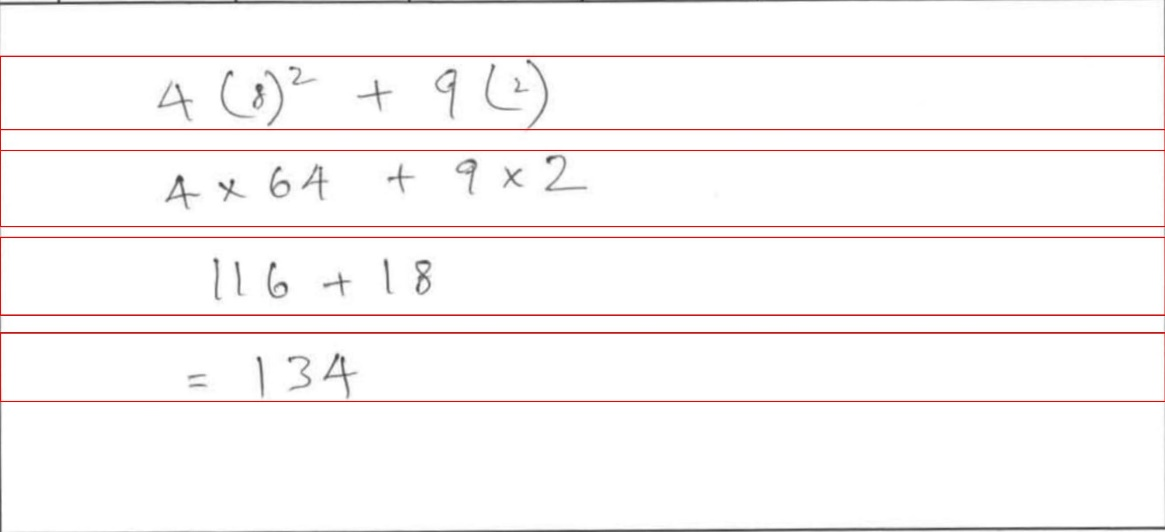 4 (8)² + 9 (2)
4 × 64 + 9 × 2
116 + 18
= 134